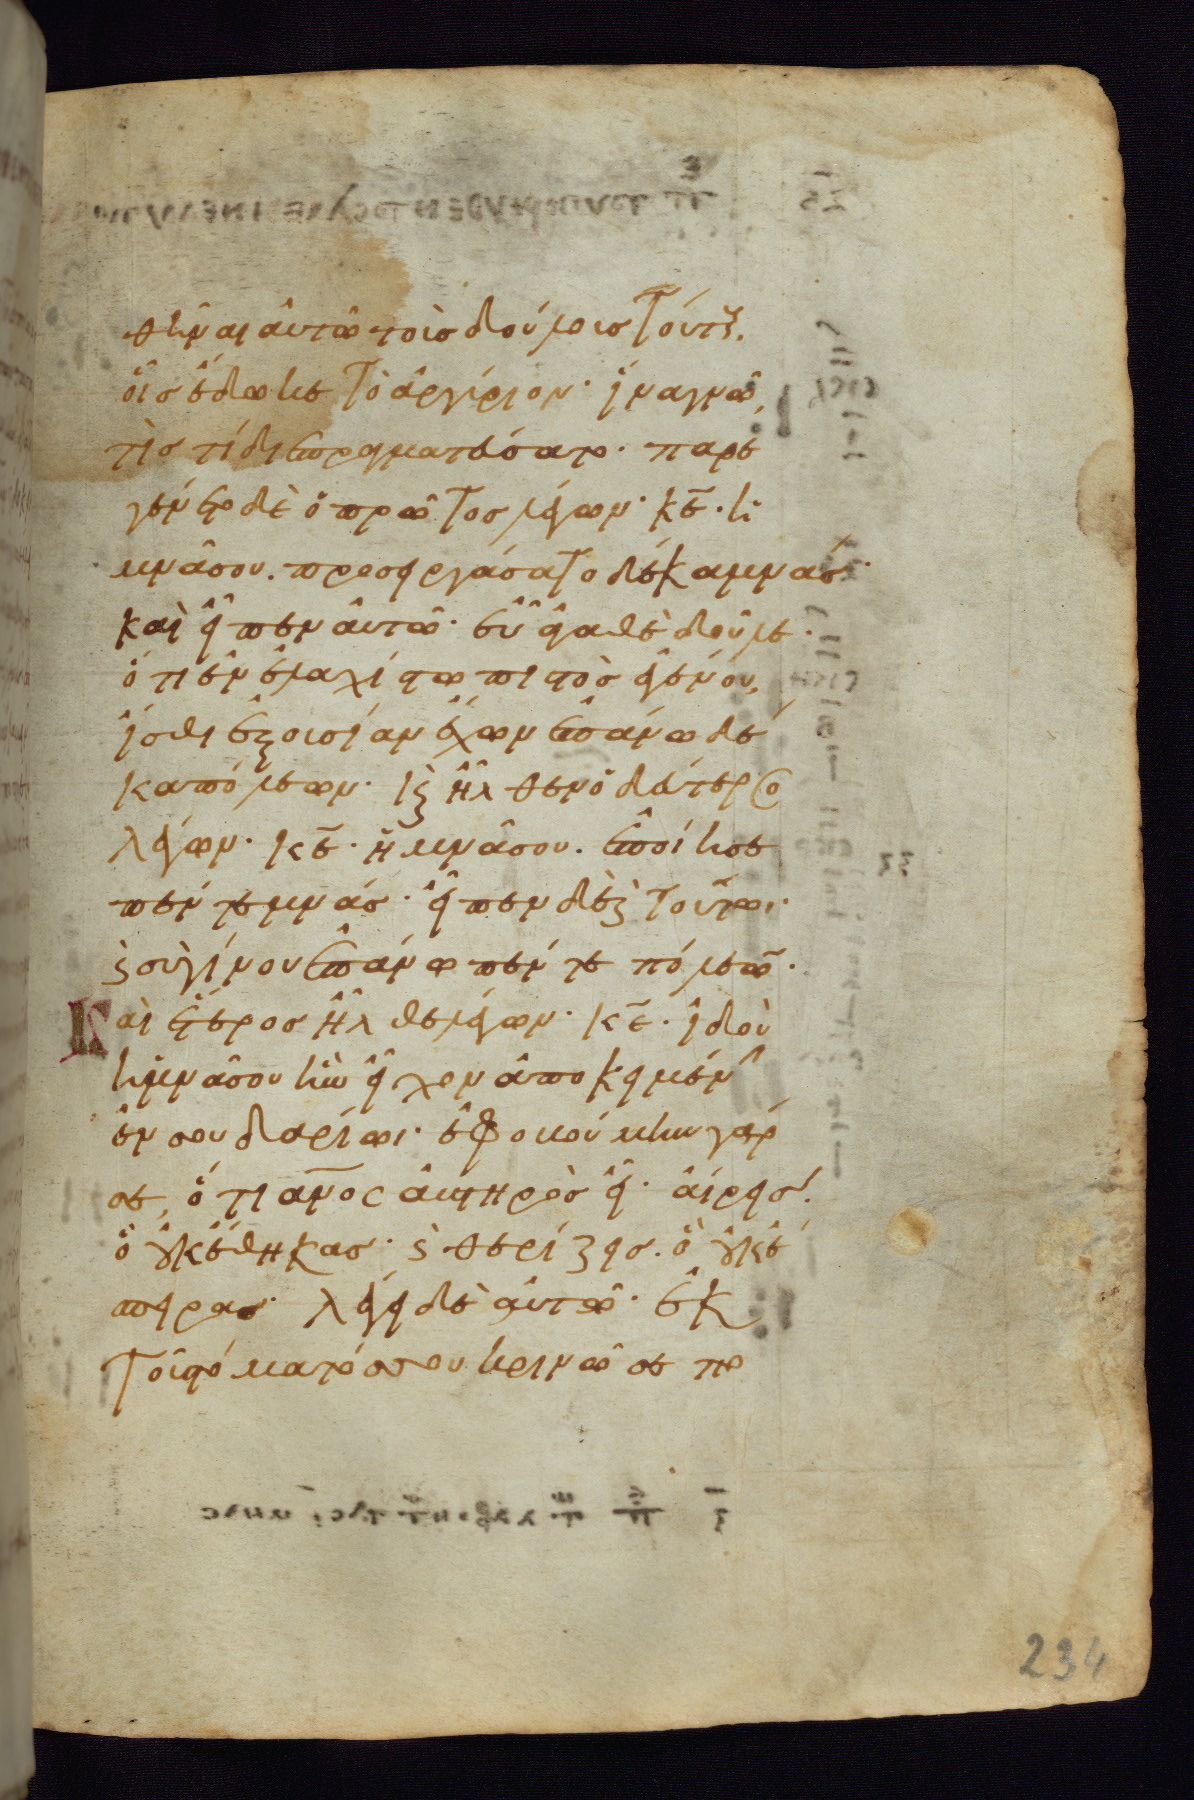 θῆναι αὐτῶ τοὺς δούλους τούτους.
οἷς ἔδωκε τὸ ἀργύριον· ἵνα γνῶ,
τίς τί διεπραγματεύσατο· παρε
γένετο δὲ ὁ πρῶτος λέγων· κ̅ε̅· ἡ
μνᾶ σου. προσειργάσατο δέκα μνάς·
καὶ εἶπεν αὐτῶ· εὖ ἀγαθὲ δοῦλε·
ὅτι ἐν ἐλαχίστω πιστὸς ἐγένου,
ἴσθι ἐξουσίαν ἔχων ἐπάνω δέ
κα πόλεων· ϗ ἦλθεν ὁ δεύτερο
λέγων· κ̅ε̅· ἡ μνᾶ σου. ἐποίησε
πέντε μνάς· εἶπεν δὲ ϗ τούτωι·
ϗ σὺ γίνου ἐπάνω πέντε πόλεω̅·
Καὶ ἕτερος ἦλθε λέγων· κ̅ε̅· ἰδοὺ
ἡ μνᾶ σου ἣν εἶχον ἀποκειμένην
ἐν σουδαρίωι· ἐφοβούμην γάρ
σε, ὅτι α̅ν̅ο̅ς̅ αὐστηρὸς εἶ· αἴρεις
ὃ οὐκ ἔθηκας· ϗ θερίζεις. ὃ οὐκ ἔ
σπειρας· λέγει δὲ αὐτῶ· ἐκ
τοῦ στόματός σου κρινῶ σε πο
234